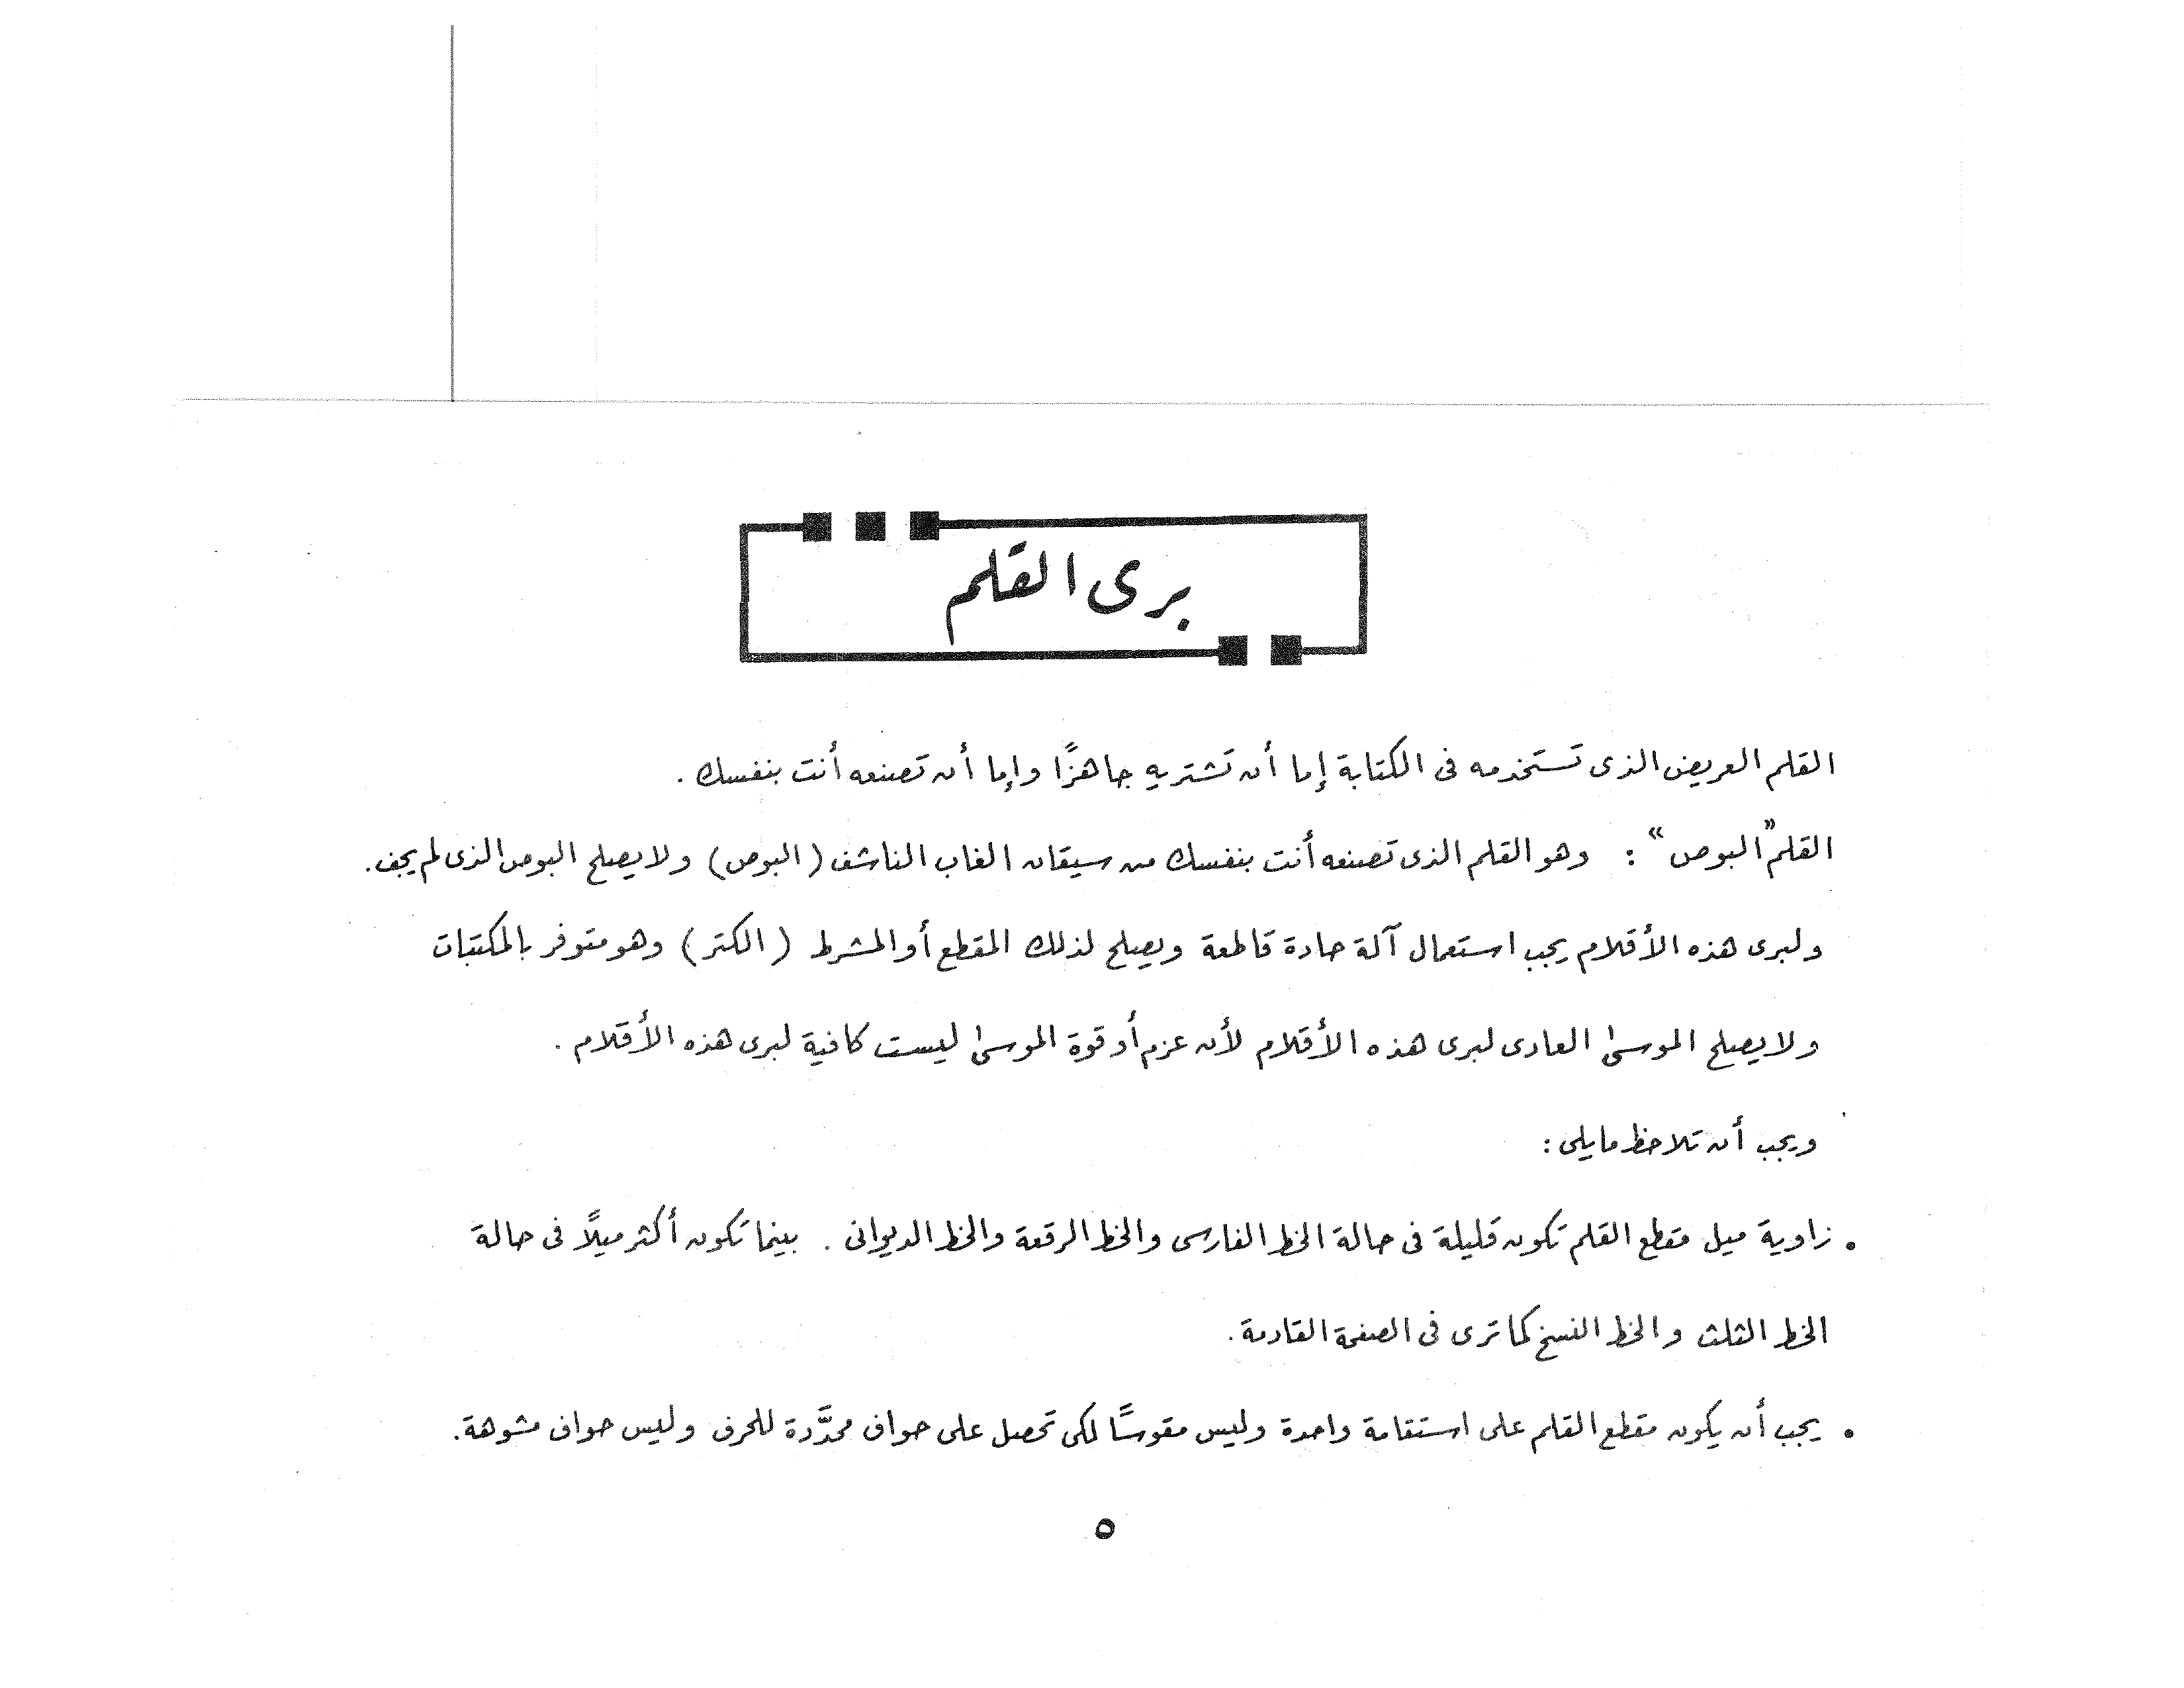 برى القلم
القلم العريض الذى تستخدمه فى الكتابة إما أن تشتريه جاهزًا وإما أن تصنعه أنت بنفسك .
القلم "البوص" : وهو القلم الذى تصنعه أنت بنفسك من سيقان الغاب الناشف (البوص) ولا يصلح البوص الذى لم يجف.
ولبرى هذه الأقلام يجب استعمال آلة حادة قاطعة ويصلح لذلك المقطع أو المشرط (الكتر) وهو متوفر بالمكتبات
ولا يصلح الموسىٰ العادى لبرى هذه الأقلام لأن عزم أو قوة الموسىٰ ليست كافية لبرى هذه الأقلام .
ويجب أن تلاحظ ما يلى :
• زاوية ميل مقطع القلم تكون قليلة فى حالة الخط الفارسى والخط الرقعة والخط الديوانى . بينما تكون أكثر ميلًا فى حالة
الخط الثلث والخط النسخ كما ترى فى الصفحة القادمة .
• يجب أن يكون مقطع القلم على استقامة واحدة وليس مقوسًا لكى تحصل على حواف محدَّدة للحرف وليس حواف مشوهة.
٥